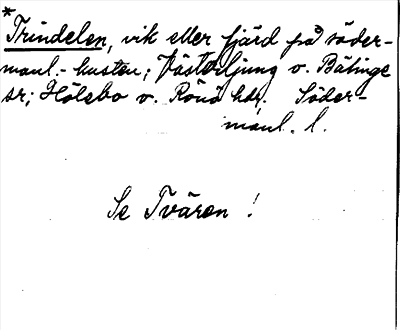 *
Trindelen, vik eller fjärd på söder-
manl.-kusten; Västerljung o. Bälinge
sr; Hölebo o. Rönö hdr. Söder-
manl. l.
Se Tvären!